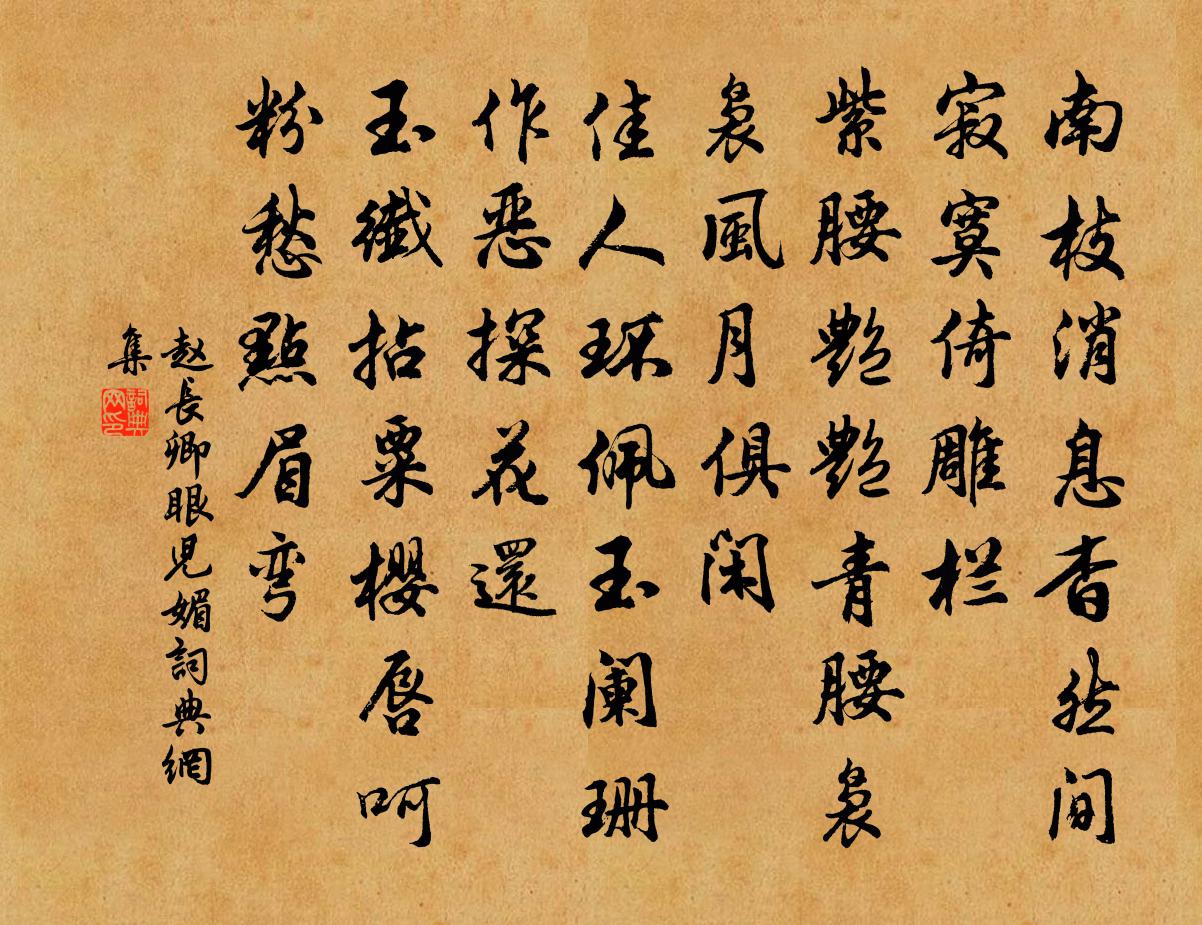 南枝消息杳然间
寂寞倚雕栏
紫腰艷艷青腰裊
裊風月俱閑
佳人环佩玉阑珊
作恶探花還
玉纖拈粟櫻唇呵
粉愁點眉彎
赵長卿眼児媚詞典網
集
詞典
网印